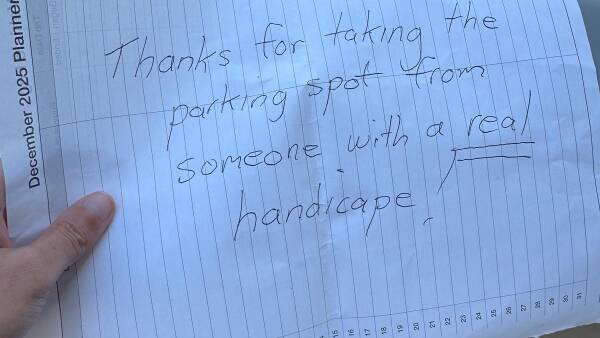 Thanks for taking the
parking spot from
someone with a real
handicape.
December 2025 Planner
15 16 17 18 19 20 21 22 23 24 25 26 27 28 29 30 31